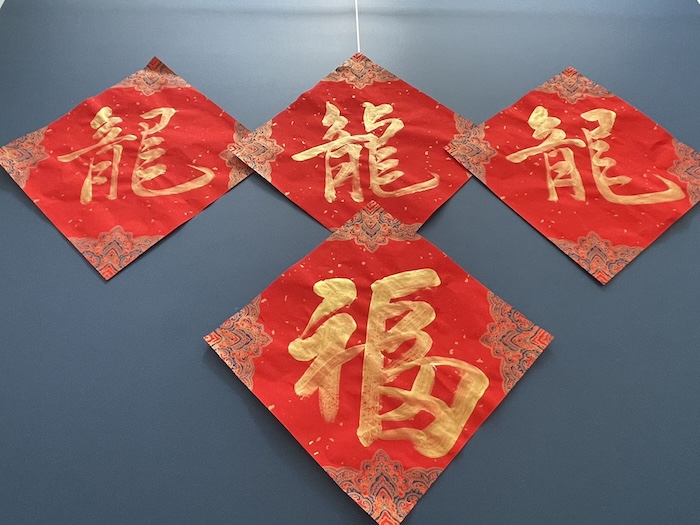 龍 龍 龍
福